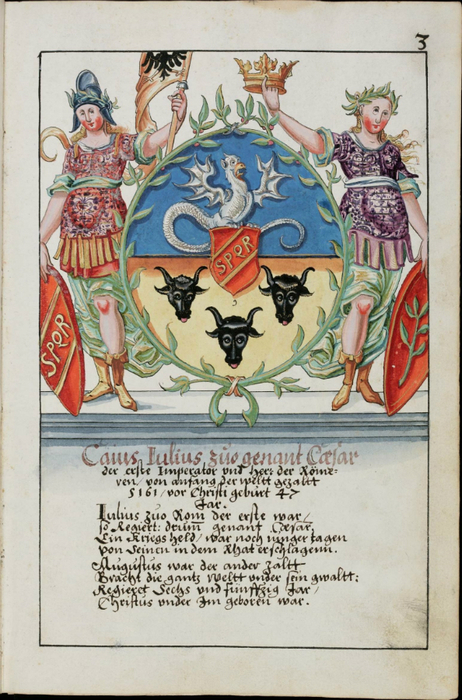 3
SPQR
SPQR
Caius Iulius zůo genant Cæsar
der erste Imperator vnd herr der Röme-
ren, von anfang der weltt gezaltt
5161, vor Christi gebürt 47
Jar.
Iulius zůo Rom der erste war,
so Regiert: drum̄ genant Cæsar,
Ein Kriegs held, war noch iunger tagen
von Seinen in dem Rhat erschlagenn.
Augustus war der ander zaltt
Bracht die gantz weltt vnder sein gwaltt:
Regieret Sechs vnd fünffzig Jar,
Christus vnder Im geboren war.